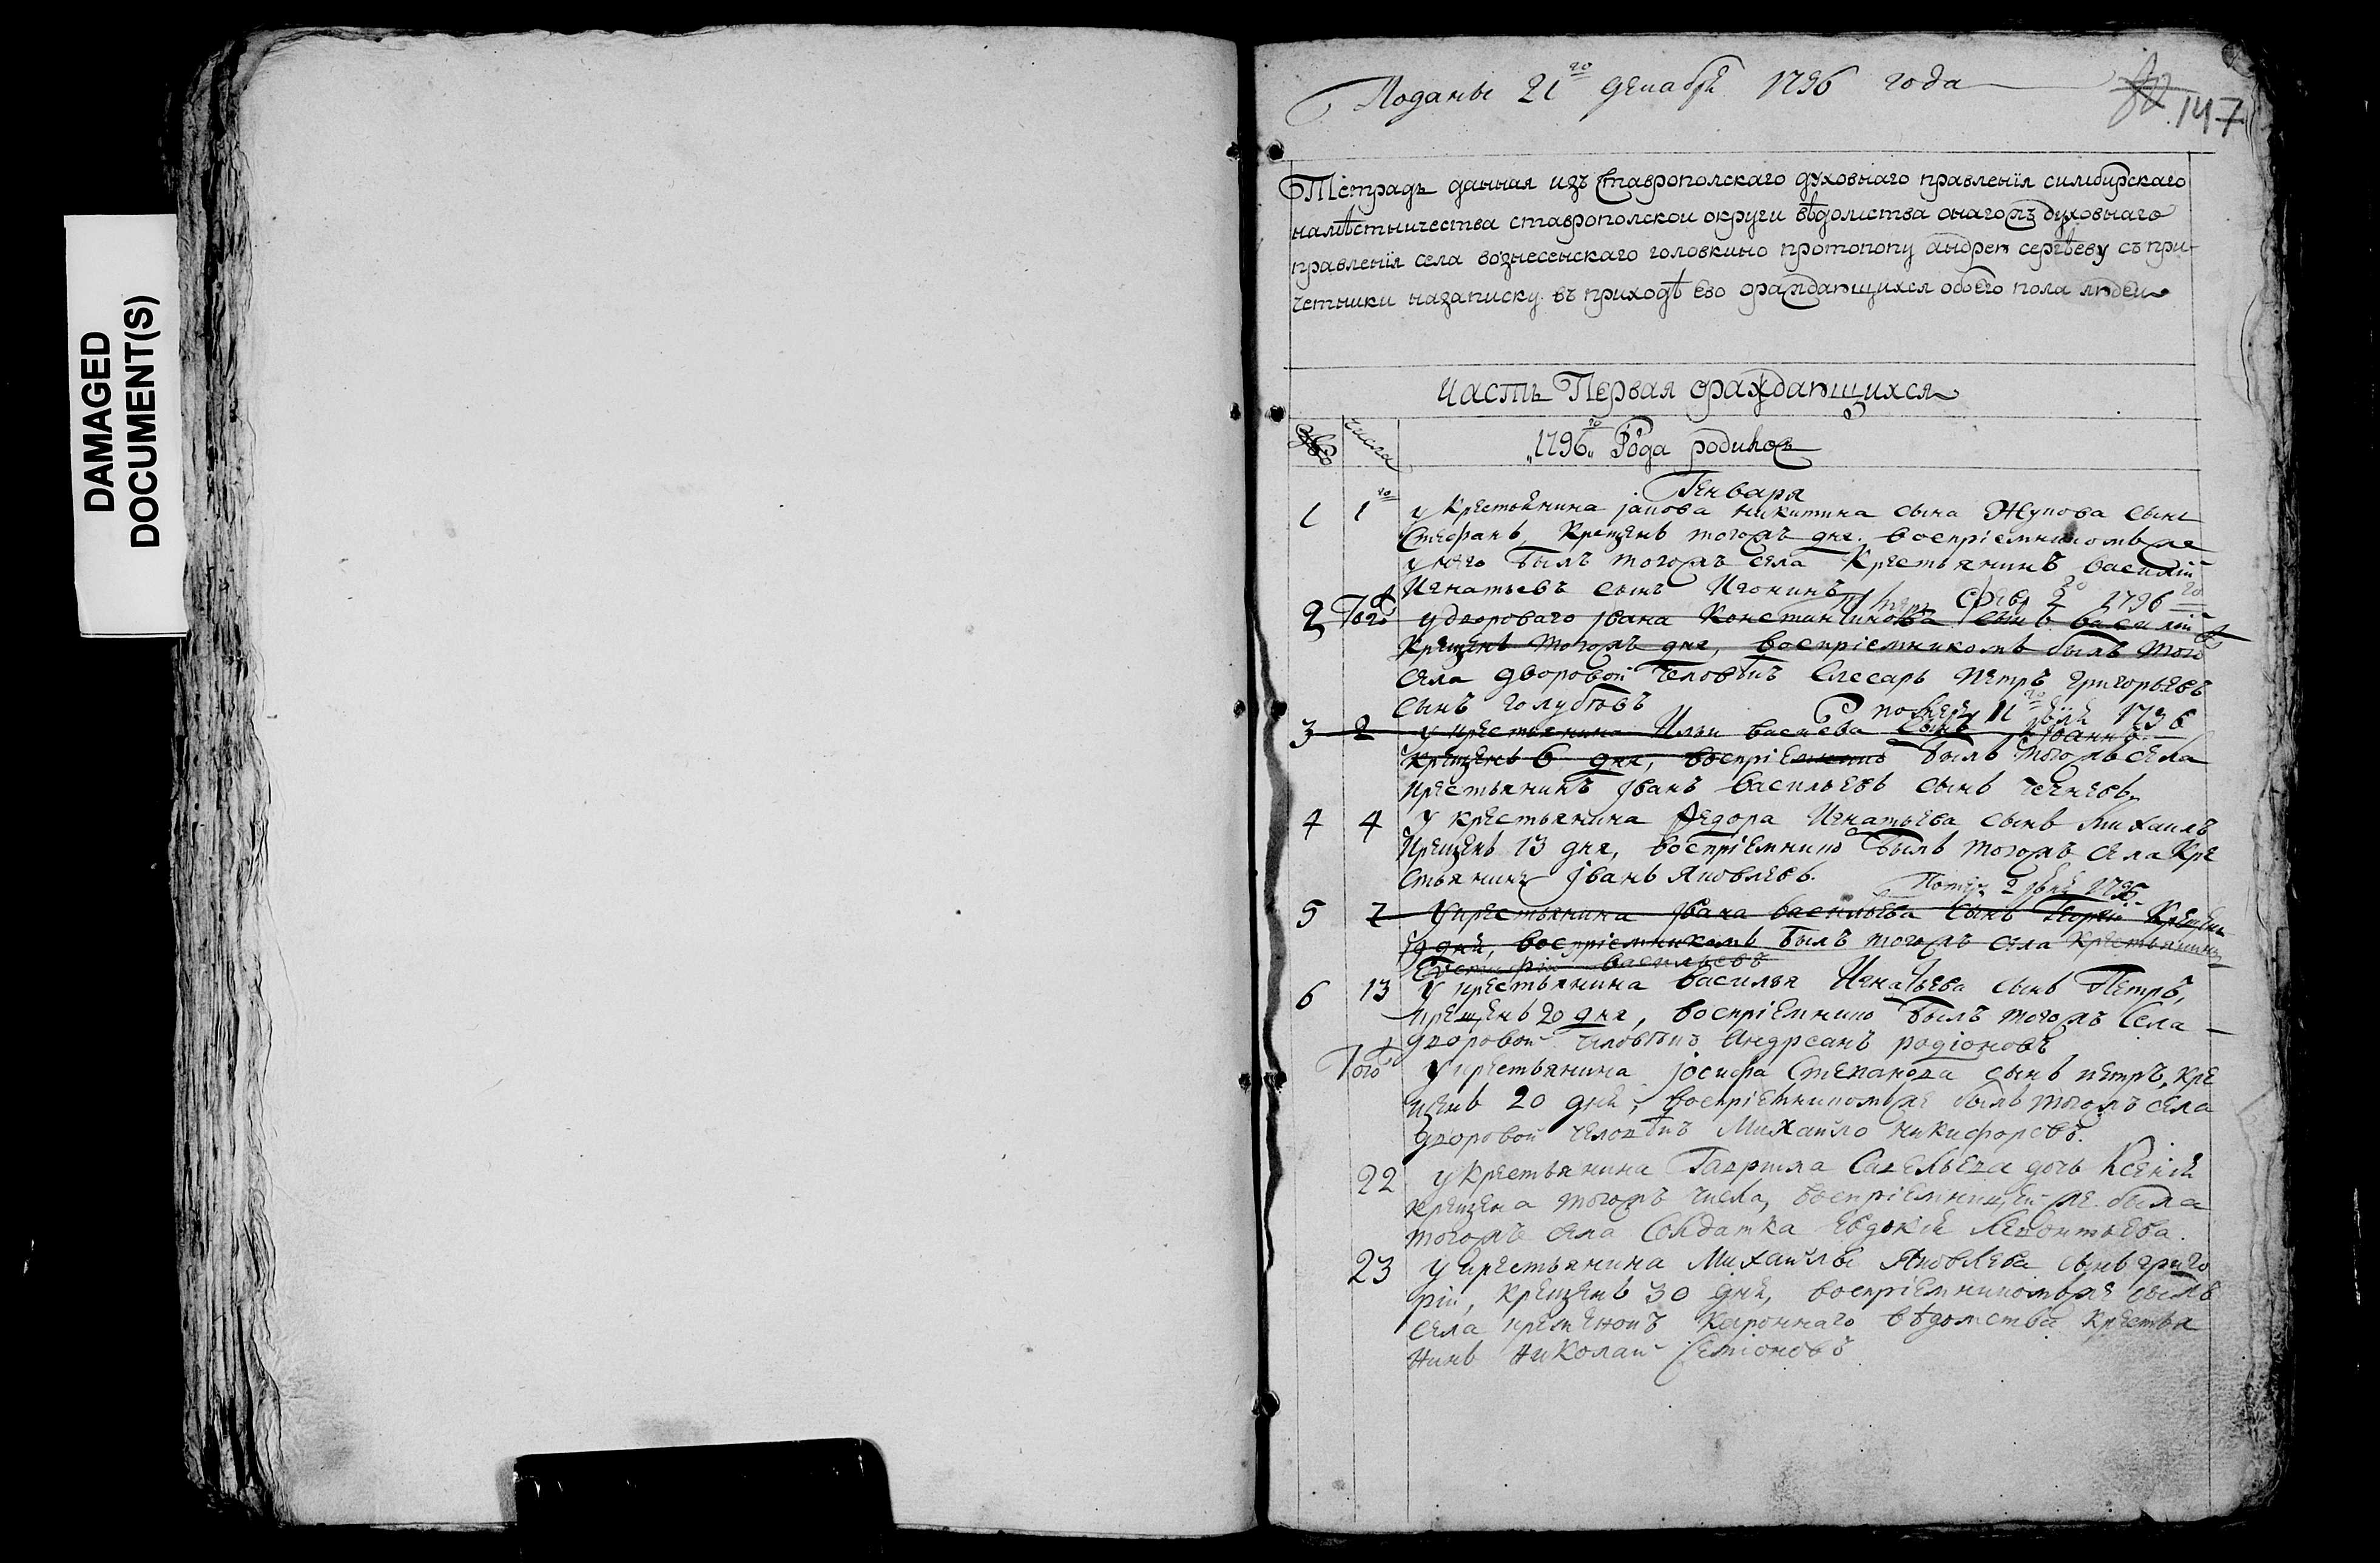 DAMAGED
DOCUMENT(S)
Поданы 21го декабря 1796 года
147
Тетрадь данная изъ ставрополскаго духовнаго правленїя симбирскаго
намѣстничества ставрополскои округи вѣдомства онагожъ духовнаго
правленїя села вознесенскаго головкино протопопу андрею сергѣеву съ при-
четники назаписку въ приходѣ его ораждающихся обоего пола людеи
Часть Первая ораждающихся
числа
1796го года родилось
Генваря
1 1го у крестьянина іакова никитина сына Жукова сынъ
Стефанъ, Крещенъ тогожъ дня. воспріемникомъ же
у него былъ тогожъ села Крестьянинъ василій
Игнатьевъ сынъ
2 Того у двороваго Ивана Константинова сынъ василій
1796го
Крещенъ тогожъ дня, воспріемникомъ былъ того
села дворовой человѣкъ Слесарь петръ григорьевъ
сынъ голубевъ
11го 1796
3 2 у крестьянина Ильи сынъ Іоаннъ
крещенъ 6 дня, былъ тогожъ села
крестьянинъ Іванъ васильевъ сынъ
4 4 у крестьянина Федора Игнатьева сынъ михаилъ
крещенъ 13 дня, воспріемнико былъ тогожъ села Кре
стьянинъ Іванъ Яковлевъ.
5 7 у крестьянина Івана васильева сынъ Георгій Крещенъ
дня, воспріемникомъ былъ тогожъ села крестьянинъ
васильевъ
6 13 у крестьянина василья Игнатьева сынъ Петръ,
крещенъ 20 дня, воспріемнико былъ тогожъ села
дворовой человѣкъ Андреянъ родіоновъ
Того у крестьянина іосифа Степанова сынъ петръ, кре
щенъ 20 дня, воспріемникомъ же былъ тогожъ села
дворовой человѣкъ Михайло никифоровъ.
22 у крестьянина Гаврила Савельева дочь Ксенія
крещена тогожъ числа, воспріемницей же была
тогожъ села Солдатка евдокія леонтьева.
23 у крестьянина Михайлы Яковлева сынъ григо
рій, крещенъ 30 дня, воспріемникомъ же былъ
села вѣдомства крестья
нинъ николай Семіоновъ